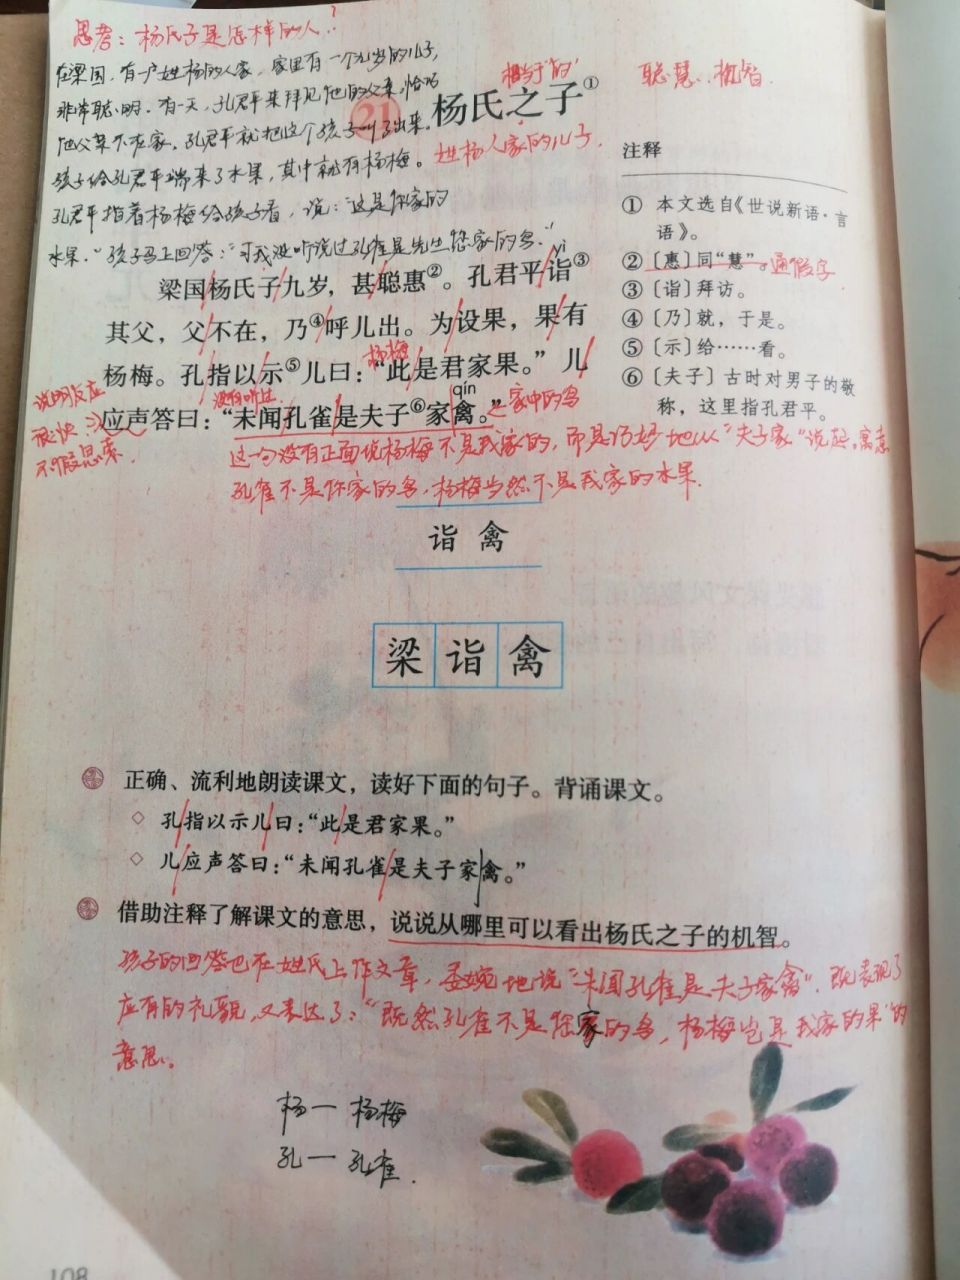 思考：杨氏子是怎样的人？
在梁国，有一户姓杨的人家，家里有一个九岁的儿子，
非常聪明。有一天，孔君平来拜见他的父亲，恰巧
他父亲不在家。孔君平就把这个孩子叫了出来。
孩子给孔君平端来了水果，其中就有杨梅。
孔君平指着杨梅给孩子看，说：“这是你家的
水果。”孩子马上回答：“可我没听说过孔雀是先生您家的鸟。”
相当于“的”
聪慧、机智.
21 杨氏之子①
姓杨人家的儿子.
yì
梁国杨氏子九岁，甚聪惠②。孔君平诣③
其父，父不在，乃④呼儿出。为设果，果有
杨梅
杨梅。孔指以示⑤儿曰：“此是君家果。”儿
没有听过
qín
应声答曰：“未闻孔雀是夫子⑥家禽。”
家中的鸟
说明反应
很快
不假思索
这一句没有正面说杨梅不是我家的，而是巧妙地以“夫子家”说起，寓意
孔雀不是你家的鸟，杨梅当然不是我家的水果.
注释
① 本文选自《世说新语·言
语》。
②〔惠〕同“慧”。通假字
③〔诣〕拜访。
④〔乃〕就，于是。
⑤〔示〕给……看。
⑥〔夫子〕古时对男子的敬
称，这里指孔君平。
诣 禽
梁 诣 禽
正确、流利地朗读课文，读好下面的句子。背诵课文。
◇ 孔指以示儿曰：“此是君家果。”
◇ 儿应声答曰：“未闻孔雀是夫子家禽。”
借助注释了解课文的意思，说说从哪里可以看出杨氏之子的机智。
孩子的回答也在姓氏上作文章，委婉地说“未闻孔雀是夫子家禽”，既表现了
应有的礼貌，又表达了：“既然孔雀不是您家的鸟，杨梅岂是我家的果”的
意思。
杨一杨梅
孔一孔雀.
108